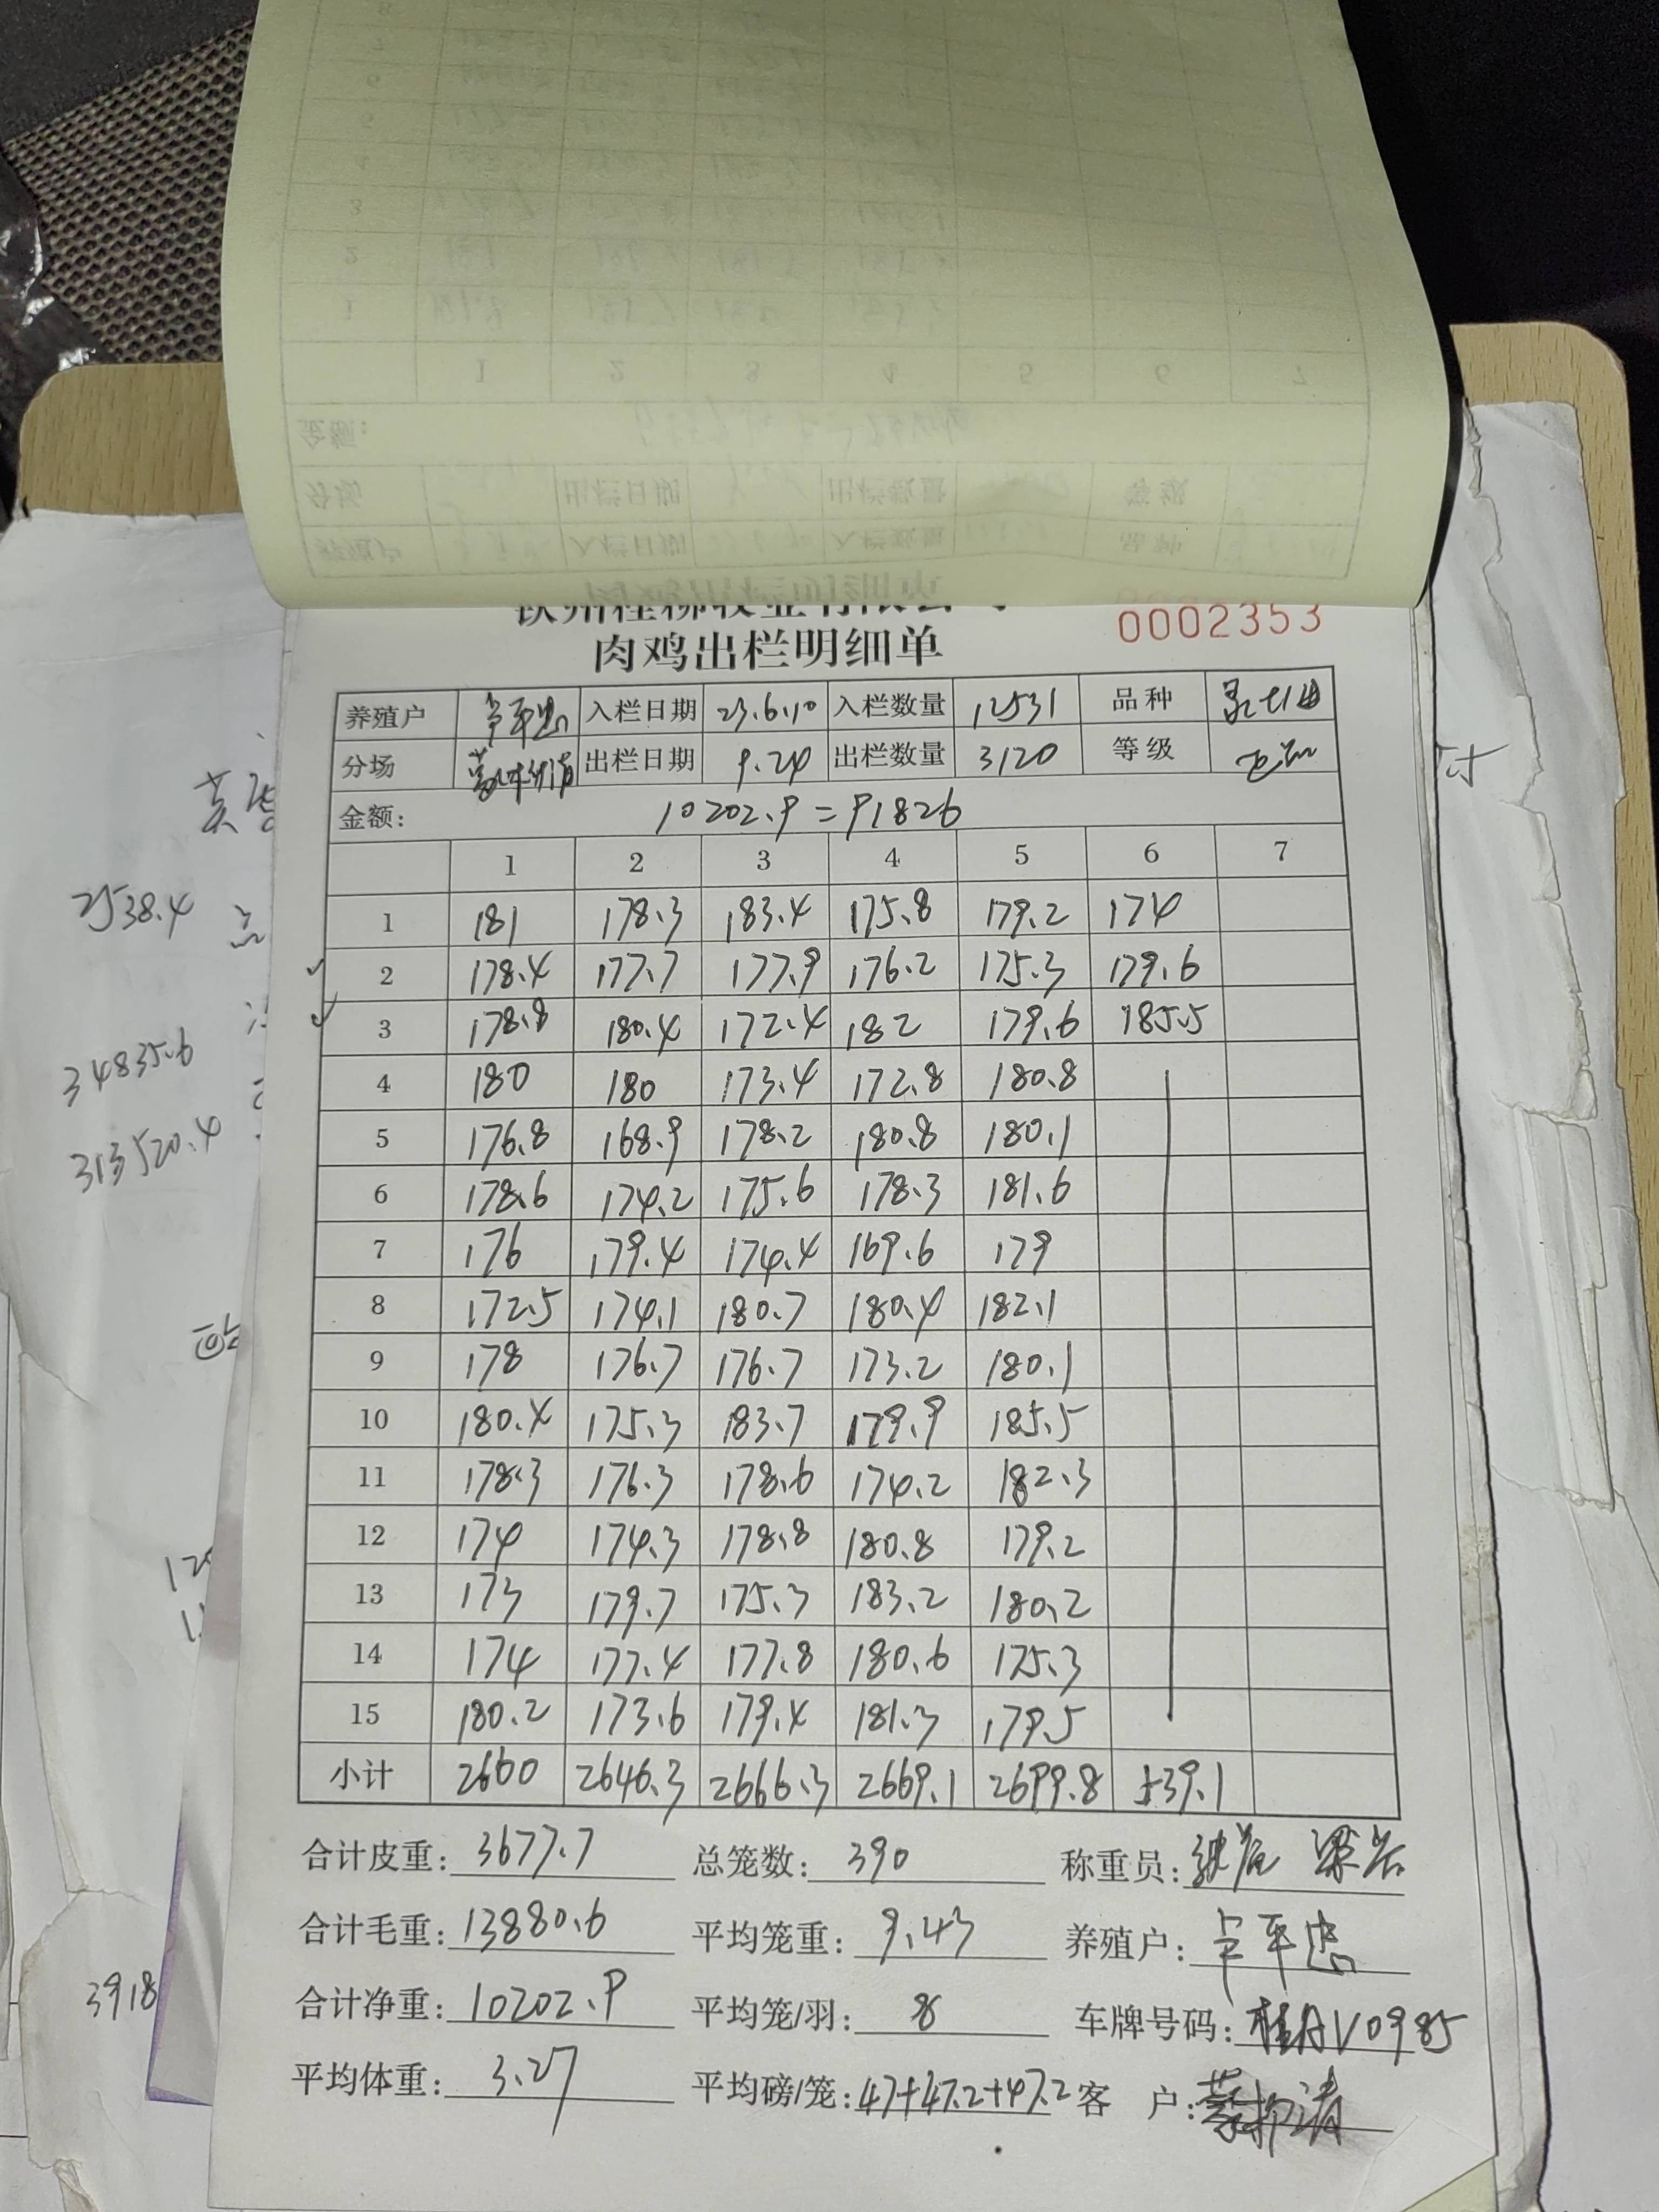 肉鸡出栏明细单
0002353
养殖户 入栏日期 23.6.10 入栏数量 12531 品种
分场 出栏日期 9.24 出栏数量 3120 等级
金额: 10202.9=91826
1 2 3 4 5 6 7
1 181 178.3 183.4 175.8 179.2 174
2 178.4 177.7 177.9 176.2 175.3 179.6
3 178.8 180.4 172.4 182 179.6 185.5
4 180 180 173.4 172.8 180.8
5 176.8 168.9 178.2 180.8 180.1
6 178.6 174.2 175.6 178.3 181.6
7 176 179.4 174.4 169.6 179
8 172.5 174.1 180.7 180.4 182.1
9 178 176.7 176.7 173.2 180.1
10 180.4 175.3 183.7 179.9 185.5
11 178.3 176.3 178.6 174.2 182.3
12 174 174.3 178.8 180.8 179.2
13 173 179.7 175.3 183.2 180.2
14 174 177.4 177.8 180.6 175.3
15 180.2 173.6 179.4 181.3 179.5
小计 2660 2646.3 2666.3 2669.1 2699.8 539.1
合计皮重: 3677.7 总笼数: 390 称重员:
合计毛重: 13880.6 平均笼重: 9.43 养殖户: 卓平忠
合计净重: 10202.9 平均笼/羽: 8 车牌号码: 桂AV0985
平均体重: 3.27 平均磅/笼: 47+47.2+47.2 客户:
2538.4
34835.6
313520.4
3918